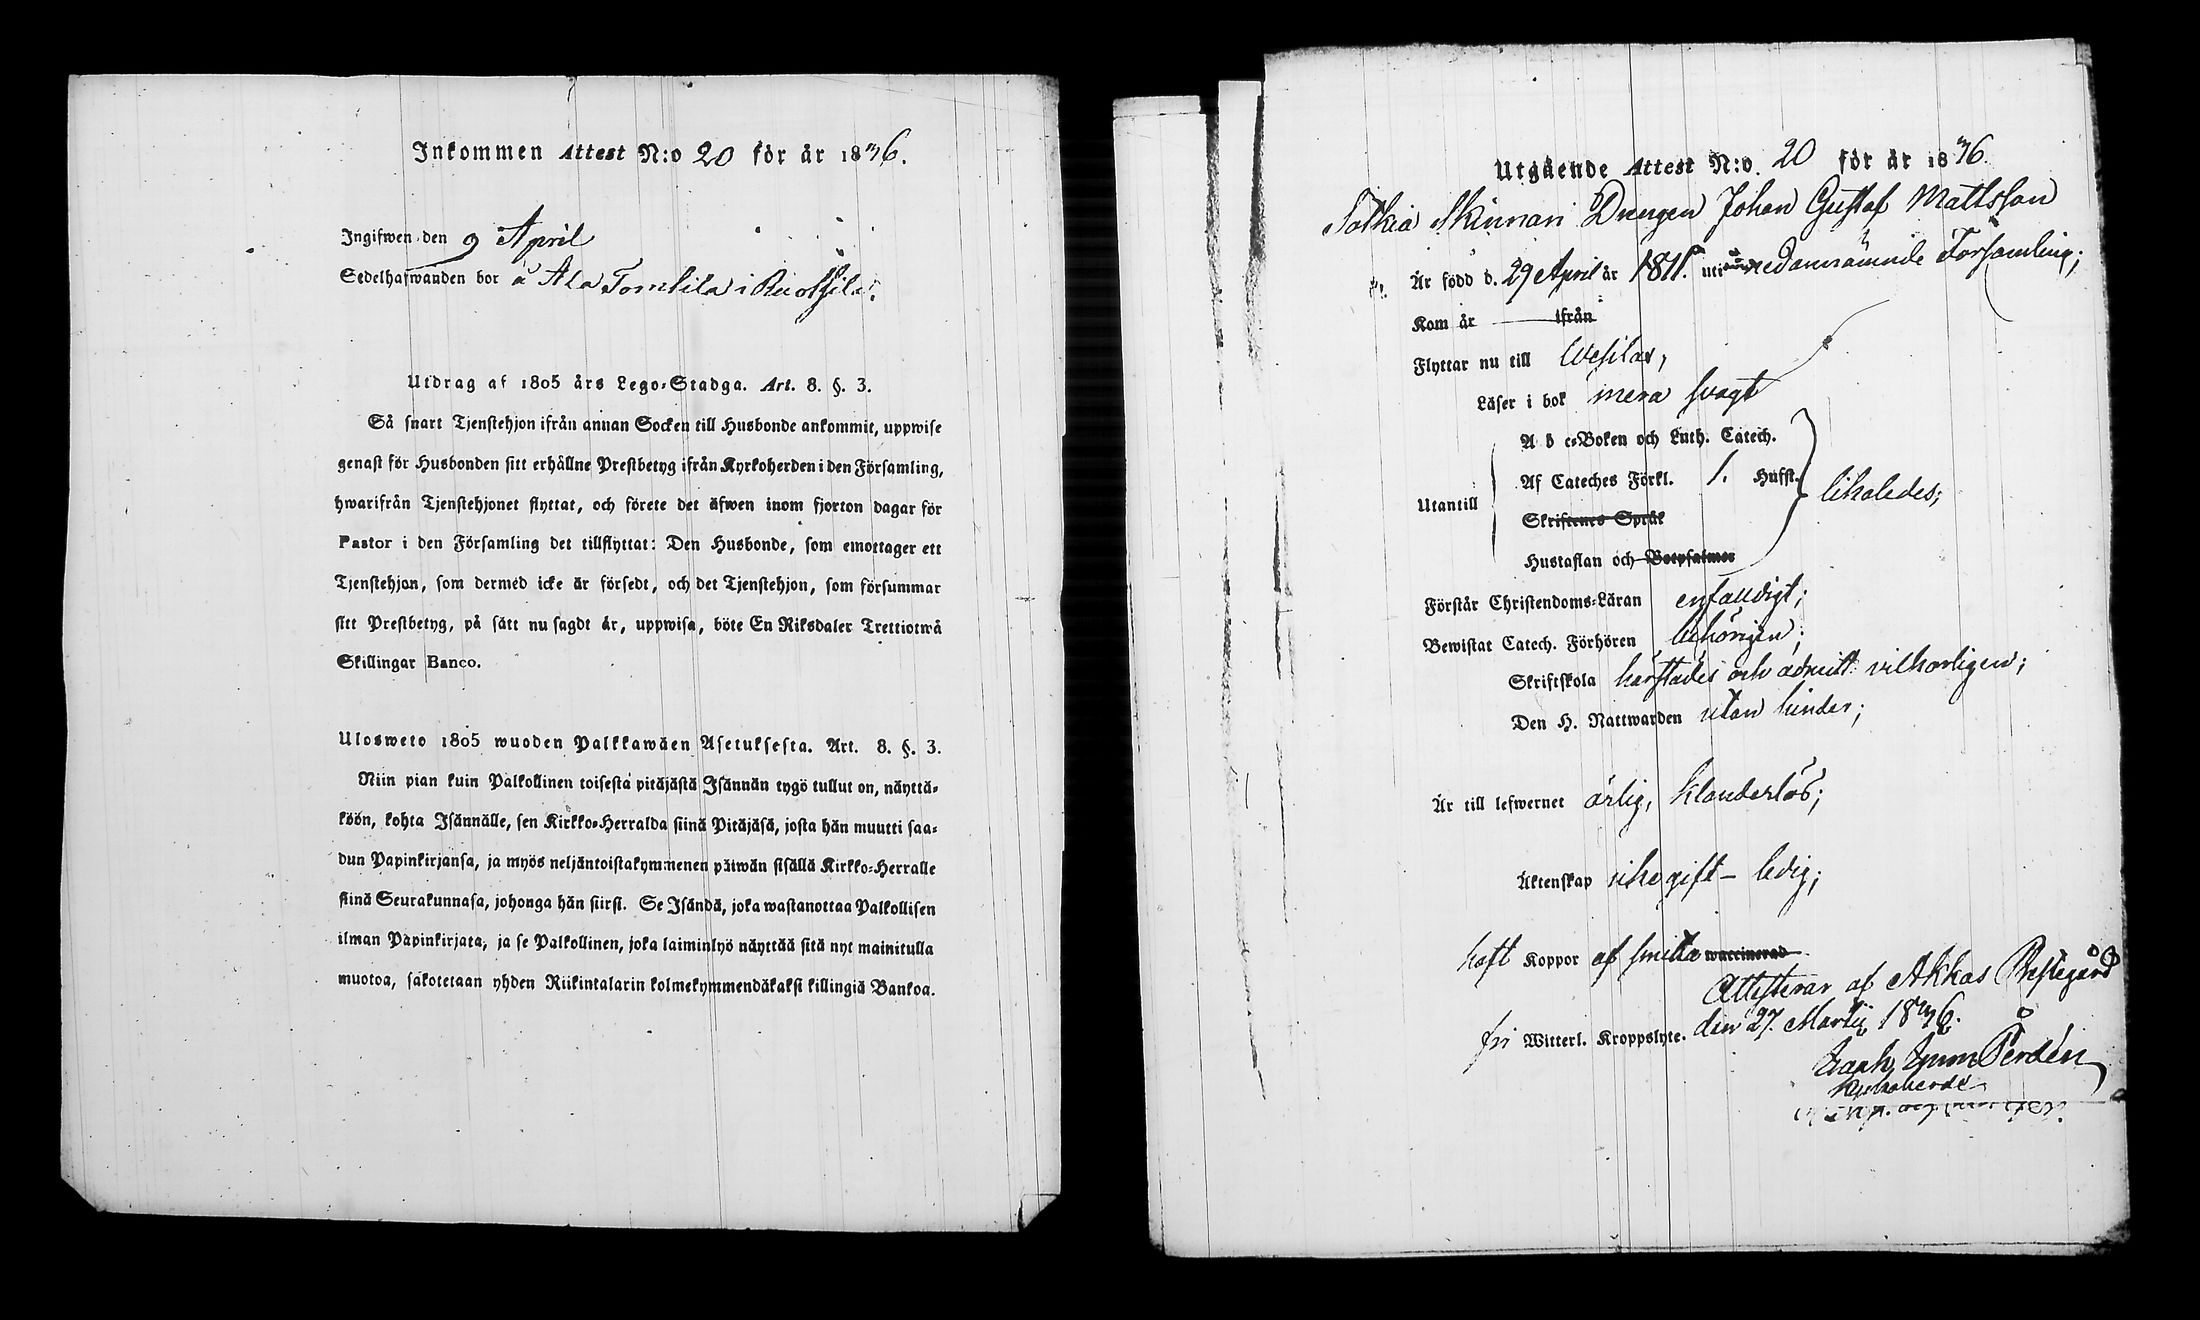 Inkommen Attest N:o 20 för år 1836.
Ingifwen den 9 April
Sedelhafwanden bor å Ala Tomkila i
Utdrag af 1805 års Lego-Stadga. Art. 8. §. 3.
Så snart Tjenstehjon ifrån annan Socken till Husbonde ankommit, uppwise
genast för Husbonden sitt erhållne Prestbetyg ifrån Kyrkoherden i den Församling,
hwarifrån Tjenstehjonet flyttat, och förete det äfwen inom fjorton dagar för
Pastor i den Församling det tillflyttat: Den Husbonde, som emottager ett
Tjenstehjon, som dermed icke är försedt, och det Tjenstehjon, som försummar
sitt Prestbetyg, på sätt nu sagdt är, uppwisa, böte En Riksdaler Trettiotwå
Skillingar Banco.
Ulosweto 1805 wuoden Palkkawäen Asetuksesta. Art. 8. §. 3.
Niin pian kuin Palkollinen toisesta pitäjästä Isännän tygö tullut on, näyttä-
köön, kohta Isännälle, sen Kirkko-Herralda siinä Pitäjäsä, josta hän muutti saa-
dun Papinkirjansa, ja myös neljäntoistakymmenen päiwän sisällä Kirkko-Herralle
siinä Seurakunnasa, johonga hän siirsi. Se Isändä, joka wastanottaa Palkollisen
ilman Papinkirjata, ja se Palkollinen, joka laiminlyö näyttää sitä nyt mainitulla
muotoa, sakotetaan yhden Riikintalarin kolmekymmendäkaksi killingiä Bankoa.
Utgående Attest N:o. 20 för år 1836.
Skinnari Drengen Johan Gustaf Mattsson
Är född d. 29 April år 1811. uti nedannämnde Församling;
Kom år ifrån
Flyttar nu till Wesilax,
Läser i bok mera svagt
A b c-Boken och Luth. Catech.
Af Cateches Förkl. 1. Hufst.
Utantill
likaledes;
Skriftenes Språk
Hustaflan och Botpsalmer
Förstår Christendoms-Läran enfaldigt;
Bewistat Catech. Förhören behörigen;
Skriftskola härstädes och admitt. vilkorligen;
Den H. Nattwarden utan hinder;
Är till lefwernet ärlig, klanderlös;
Äktenskap icke gift - ledig;
haft Koppor af smitta waccinerad
Attesterar af Akkas Prestegård
fri Witterl. Kroppslyte. den 27. Martij 1836.